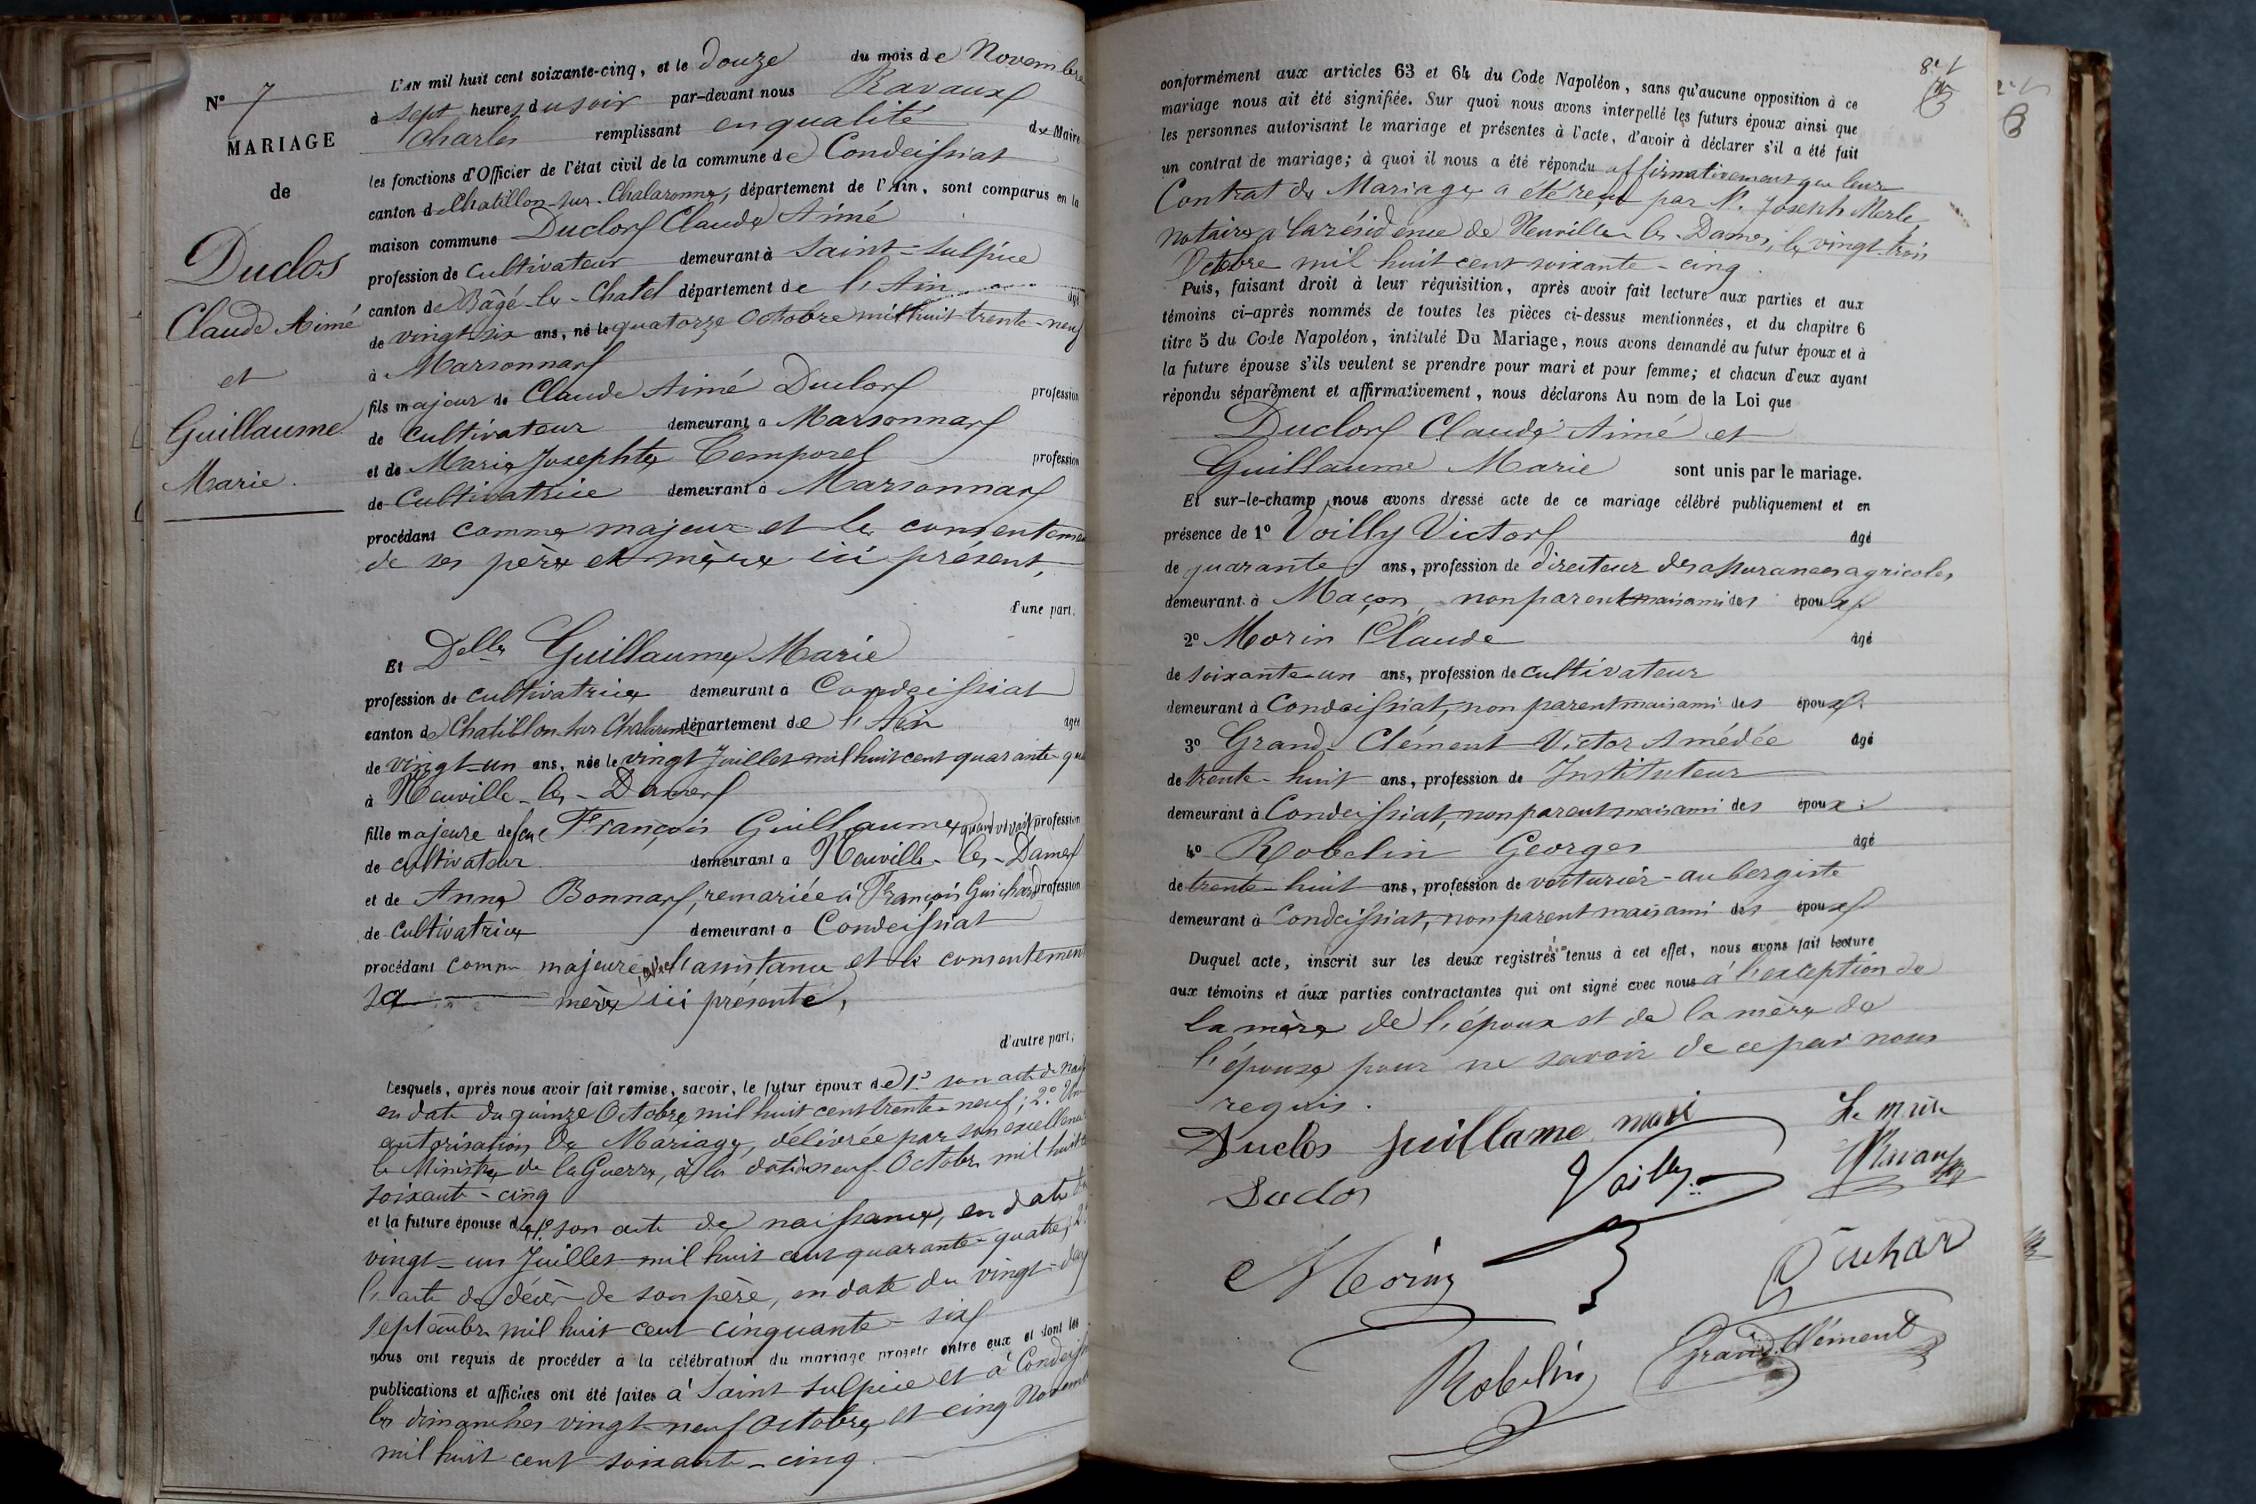 N° 7
MARIAGE
de
Duclos
Claude Aimé
et
Guillaume
Marie.
L'AN mil huit cent soixante-cinq, et le douze du mois de Novembre
à sept heures du soir par-devant nous Ravaux
Charles remplissant en qualité de Maire
les fonctions d'Officier de l'état civil de la commune de Condeissiat
canton de Chatillon-sur-Chalaronne, département de l'Ain, sont comparus en la
maison commune Duclos Claude Aimé
profession de cultivateur demeurant à Saint-Sulpice
canton de Bâgé-le-Chatel département de l'Ain âgé
de vingt-six ans, né le quatorze Octobre mil huit trente-neuf
à Marsonnas
fils majeur de Claude Aimé Duclos profession
de cultivateur demeurant à Marsonnas
et de Marie Josephte Temporel profession
de Cultivatrice demeurant à Marsonnas
procédant comme majeur et le consentement
de ses père et mère ici présent,
d'une part.
Et Delle Guillaume Marie
profession de cultivatrice demeurant à Condeissiat
canton de Chatillon sur Chalaronne département de l'Ain âgée
de vingt-un ans, née le vingt Juillet mil huit cent quarante-qua
à Neuville-les-Dames
fille majeure de feu François Guillaume, quand vivait profession
de cultivateur demeurant à Neuville-les-Dames
et de Anne Bonnas, remariée à François Guichard profession
de cultivatrice demeurant à Condeissiat
procédant comme majeure l'assistance et le consentement
sa mère ici présente,
d'autre part,
Lesquels, après nous avoir fait remise, savoir, le futur époux de 1° son acte de nais
en date du quinze Octobre mil huit cent trente-neuf; 2° Une
autorisation de Mariage, délivrée par son excellence
le Ministre de la Guerre, à la date neuf Octobre mil huit
soixante-cinq
et la future épouse de 1° son acte de naissance, en date du
vingt-un Juillet mil huit cent quarante-quatre; 2°
l'acte de décès de son père, en date du vingt-deux
Septembre mil huit cent cinquante-six
nous ont requis de procéder à la célébration du mariage projeté entre eux et dont les
publications et affiches ont été faites à Saint Sulpice et à Condeissi
les dimanches vingt-neuf Octobre et cinq Novembre
mil huit cent soixante-cinq.
conformément aux articles 63 et 64 du Code Napoléon, sans qu'aucune opposition à ce
mariage nous ait été signifiée. Sur quoi nous avons interpellé les futurs époux ainsi que
les personnes autorisant le mariage et présentes à l'acte, d'avoir à déclarer s'il a été fait
un contrat de mariage; à quoi il nous a été répondu affirmativement que leur
Contrat de Mariage a été reçu par Me Joseph Merle,
notaire à la résidence de Neuville-les-Dames, le vingt-trois
Octobre mil huit cent soixante-cinq.
Puis, faisant droit à leur réquisition, après avoir fait lecture aux parties et aux
témoins ci-après nommés de toutes les pièces ci-dessus mentionnées, et du chapitre 6
titre 5 du Code Napoléon, intitulé Du Mariage, nous avons demandé au futur époux et à
la future épouse s'ils veulent se prendre pour mari et pour femme; et chacun d'eux ayant
répondu séparément et affirmativement, nous déclarons Au nom de la Loi que
Duclos Claude Aimé et
Guillaume Marie sont unis par le mariage.
Et sur-le-champ nous avons dressé acte de ce mariage célébré publiquement et en
présence de 1° Voilly Victor âgé
de quarante ans, profession de directeur des assurances agricoles
demeurant à Maçon, non parent mais ami des époux
2° Morin Claude âgé
de soixante-un ans, profession de cultivateur
demeurant à Condeissiat, non parent mais ami des époux.
3° Grand-Clément Victor Amédée âgé
de trente-huit ans, profession de Instituteur
demeurant à Condeissiat, non parent mais ami des époux.
4° Robelin Georges âgé
de trente-huit ans, profession de voiturier-aubergiste
demeurant à Condeissiat, non parent mais ami des époux
Duquel acte, inscrit sur les deux registres tenus à cet effet, nous avons fait lecture
aux témoins et aux parties contractantes qui ont signé avec nous à l'exception de
la mère de l'époux et de la mère de
l'épouse pour ne savoir de ce par nous
requis.
Duclos guillame mari Le maire
Duclos Voilly Ravaux
Morin Guichar
Robelin Grand-Clément